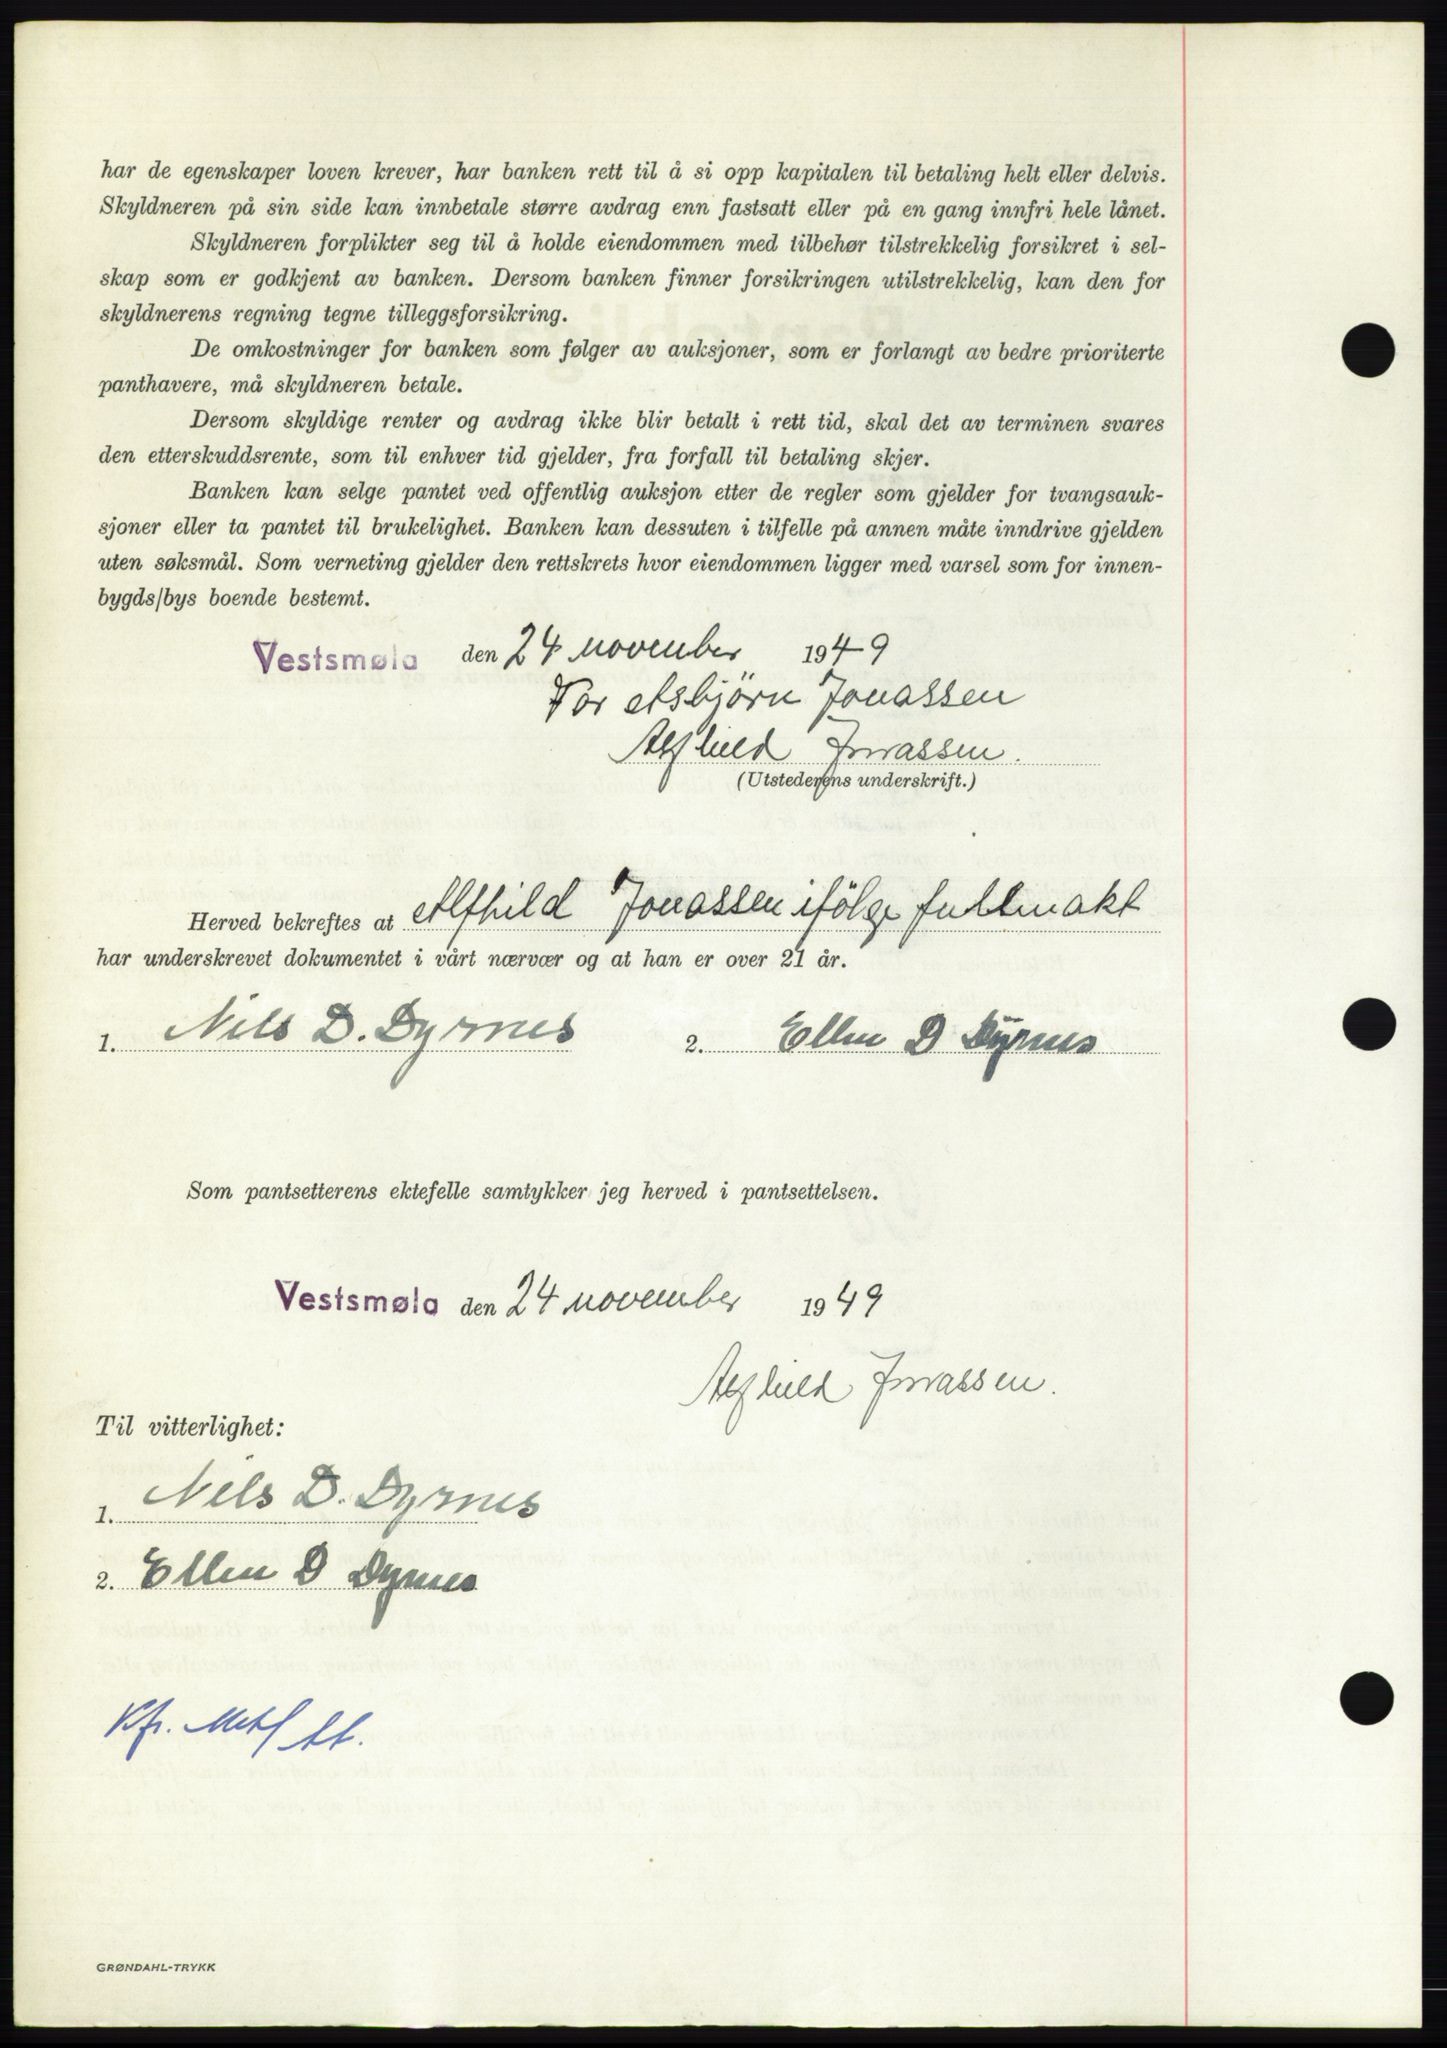 har de egenskaper loven krever, har banken rett til å si opp kapitalen til betaling helt eller delvis.
Skyldneren på sin side kan innbetale større avdrag enn fastsatt eller på en gang innfri hele lånet.
Skyldneren forplikter seg til å holde eiendommen med tilbehør tilstrekkelig forsikret i sel-
skap som er godkjent av banken. Dersom banken finner forsikringen utilstrekkelig, kan den for
skyldnerens regning tegne tilleggsforsikring.
De omkostninger for banken som følger av auksjoner, som er forlangt av bedre prioriterte
panthavere, må skyldneren betale.
Dersom skyldige renter og avdrag ikke blir betalt i rett tid, skal det av terminen svares
den etterskuddsrente, som til enhver tid gjelder, fra forfall til betaling skjer.
Banken kan selge pantet ved offentlig auksjon etter de regler som gjelder for tvangsauk-
sjoner eller ta pantet til brukelighet. Banken kan dessuten i tilfelle på annen måte inndrive gjelden
uten søksmål. Som verneting gjelder den rettskrets hvor eiendommen ligger med varsel som for innen-
bygds/bys boende bestemt.
Vestsmøla den 24 november 1949
For Asbjörn Jonassen
Alfhild Jonassen.
(Utstederens underskrift.)
Herved bekreftes at Alfhild Jonassen ifölge fullmakt
har underskrevet dokumentet i vårt nærvær og at han er over 21 år.
1. Nils D. Dyrnes 2. Ellen D Dyrnes
Som pantsetterens ektefelle samtykker jeg herved i pantsettelsen.
Vestsmøla den 24 november 1949
Alfhild Jonassen.
Til vitterlighet:
1. Nils D. Dyrnes
2. Ellen D Dyrnes
Kfr.
GRØNDAHL-TRYKK